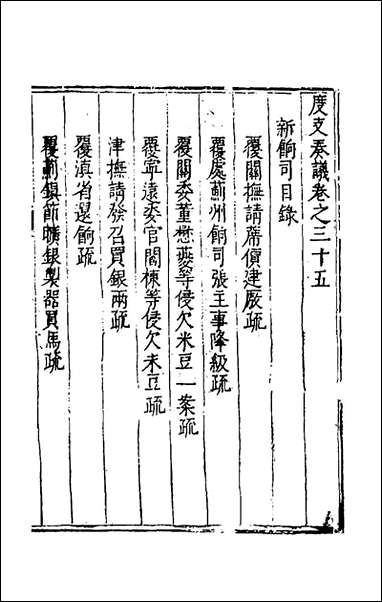 度支奏議卷之三十五
新餉司目錄
覆關撫請蓆價建厫疏
覆處薊州餉司張主事降級疏
覆關委董懋爕等侵欠米豆一案疏
覆寧遠委官閻棟等侵欠米豆疏
津撫請發召買銀兩疏
覆滇省還餉疏
覆薊鎮節曠銀製器買馬疏